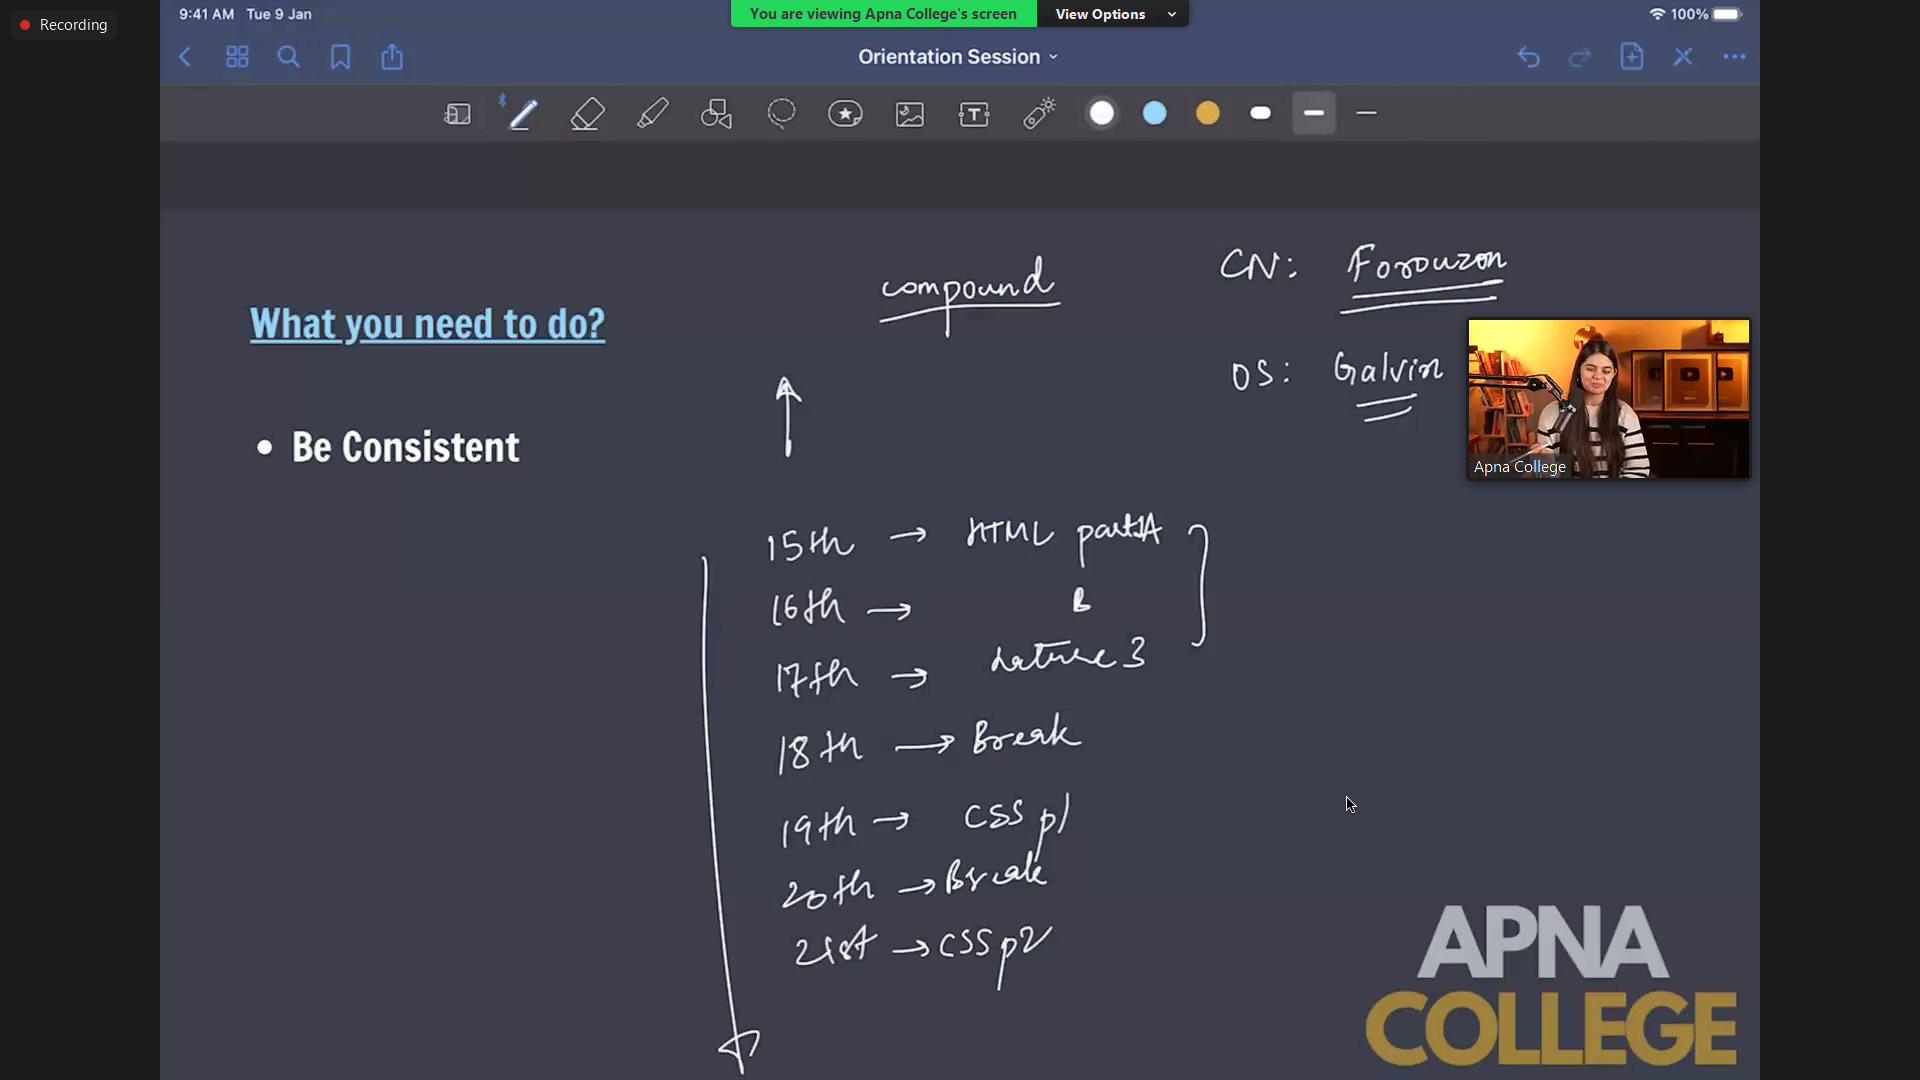 Recording
9:41 AM Tue 9 Jan
You are viewing Apna College's screen View Options
100%
Orientation Session
What you need to do?
• Be Consistent
compound
CN: Forouzan
OS: Galvin
Apna College
15th → HTML part1A
16th → B
17th → 3
18th → Break
19th → CSS p1
20th → Break
21st → CSS p2
APNA
COLLEGE